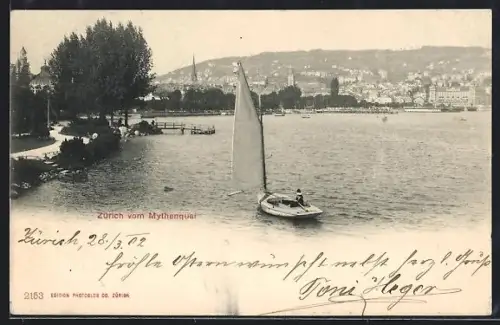 Zürich vom Mythenquai
Zürich, 28./3. 02
fröhle Osternwünscht nebst herzl. Grüße
Toni Heger
2153 EDITION PHOTOGLOB CO. ZÜRICH